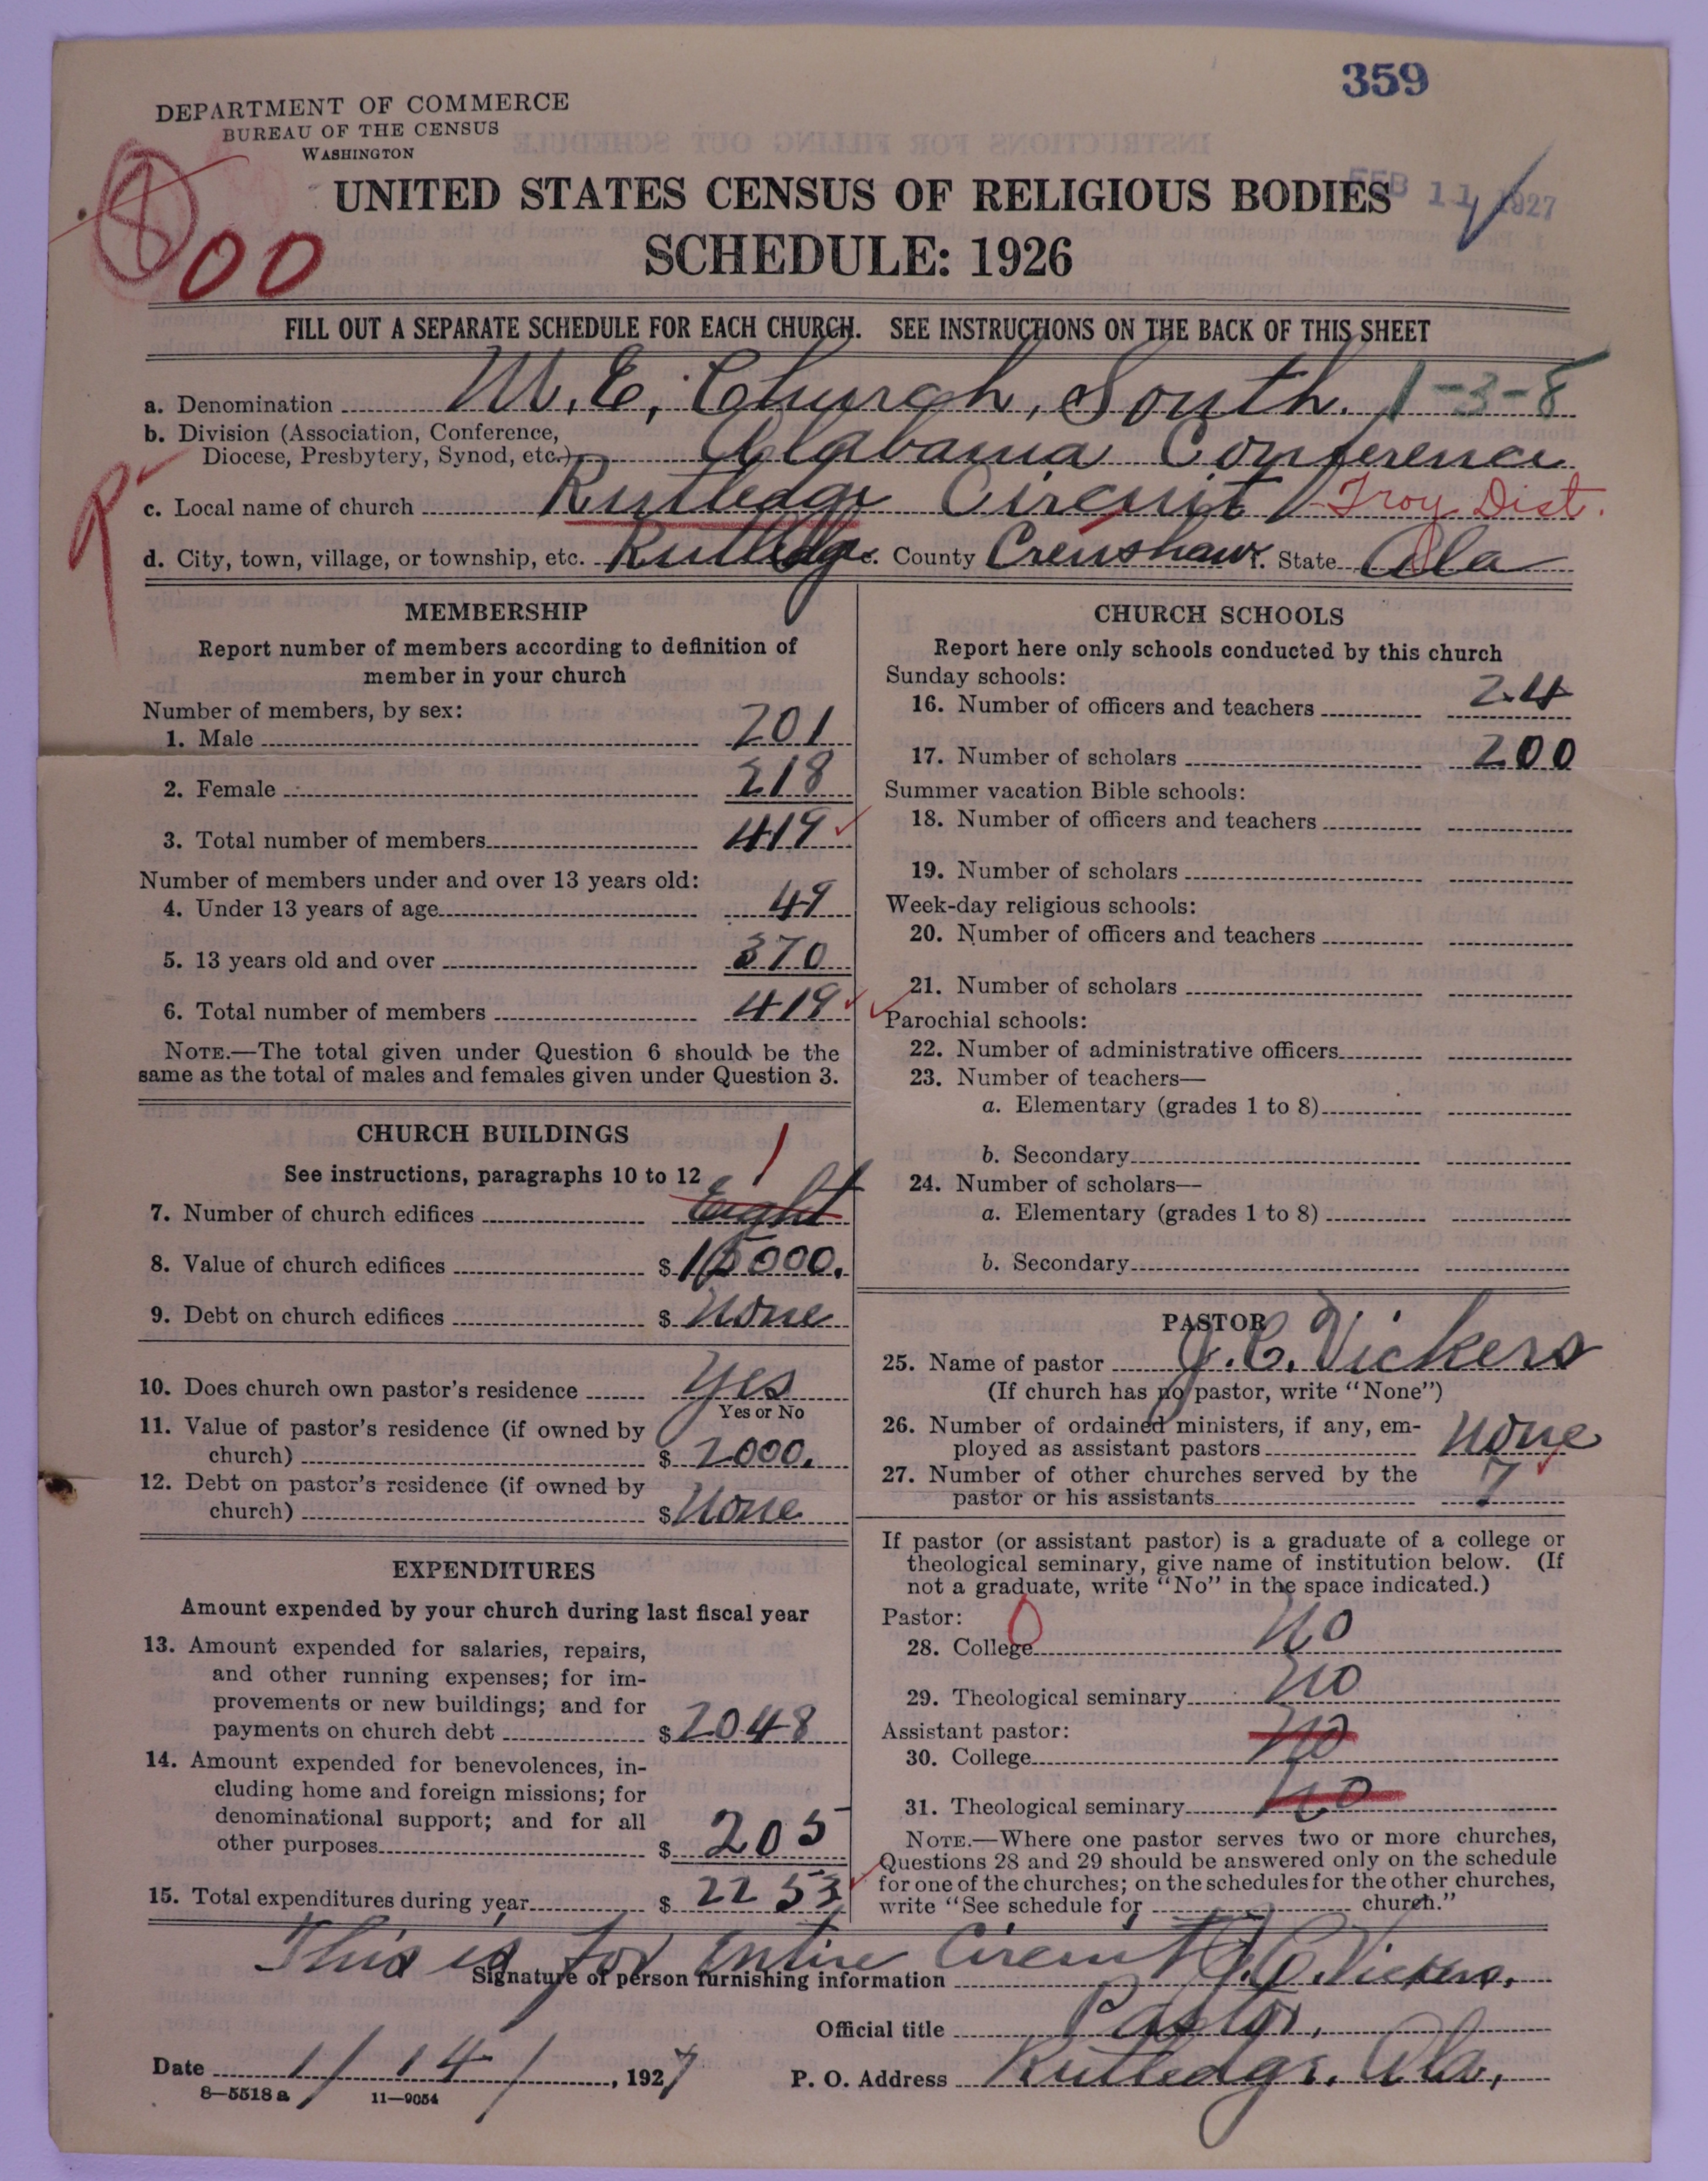 359
DEPARTMENT OF COMMERCE
BUREAU OF THE CENSUS
WASHINGTON
FEB 11 1927
800
UNITED STATES CENSUS OF RELIGIOUS BODIES
SCHEDULE: 1926
FILL OUT A SEPARATE SCHEDULE FOR EACH CHURCH. SEE INSTRUCTIONS ON THE BACK OF THIS SHEET
a. Denomination M. E. Church, South. 1-3-8
b. Division (Association, Conference,
Diocese, Presbytery, Synod, etc.) Alabama Conference
c. Local name of church Rutledge Circuit Troy Dist.
d. City, town, village, or township, etc. Rutledge e. County Crenshaw f. State Ala
MEMBERSHIP
Report number of members according to definition of
member in your church
Number of members, by sex:
1. Male 201
2. Female 218
3. Total number of members 419
Number of members under and over 13 years old:
4. Under 13 years of age 49
5. 13 years old and over 370
6. Total number of members 419
NOTE.—The total given under Question 6 should be the
same as the total of males and females given under Question 3.
CHURCH BUILDINGS
See instructions, paragraphs 10 to 12
7. Number of church edifices Eight
8. Value of church edifices $ 15000.
9. Debt on church edifices $ None
10. Does church own pastor's residence Yes
Yes or No
11. Value of pastor's residence (if owned by
church) $ 2000.
12. Debt on pastor's residence (if owned by
church) $ None
EXPENDITURES
Amount expended by your church during last fiscal year
13. Amount expended for salaries, repairs,
and other running expenses; for im-
provements or new buildings; and for
payments on church debt $ 2048
14. Amount expended for benevolences, in-
cluding home and foreign missions; for
denominational support; and for all
other purposes $ 205
15. Total expenditures during year $ 2253
CHURCH SCHOOLS
Report here only schools conducted by this church
Sunday schools:
16. Number of officers and teachers 24
17. Number of scholars 200
Summer vacation Bible schools:
18. Number of officers and teachers
19. Number of scholars
Week-day religious schools:
20. Number of officers and teachers
21. Number of scholars
Parochial schools:
22. Number of administrative officers
23. Number of teachers—
a. Elementary (grades 1 to 8)
b. Secondary
24. Number of scholars—
a. Elementary (grades 1 to 8)
b. Secondary
PASTOR
25. Name of pastor J. C. Vickers
(If church has no pastor, write "None")
26. Number of ordained ministers, if any, em-
ployed as assistant pastors None
27. Number of other churches served by the
pastor or his assistants 7
If pastor (or assistant pastor) is a graduate of a college or
theological seminary, give name of institution below. (If
not a graduate, write "No" in the space indicated.)
Pastor:
28. College No
29. Theological seminary No
Assistant pastor:
30. College No
31. Theological seminary No
NOTE.—Where one pastor serves two or more churches,
Questions 28 and 29 should be answered only on the schedule
for one of the churches; on the schedules for the other churches,
write "See schedule for church."
This is for Entire Circuit
Signature of person furnishing information J. C. Vickers.
Official title Pastor.
Date 1/14/, 1927 P. O. Address Rutledge, Ala.,
8—5518 a 11—9054